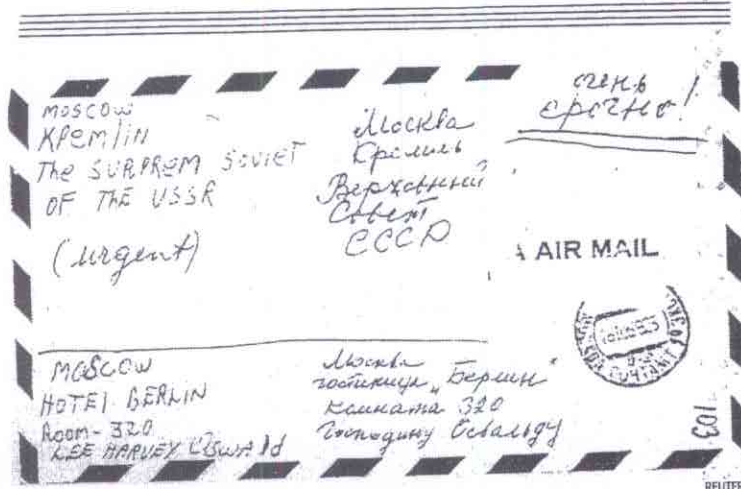 MOSCOW
KREMlIN
The SURPREM SOVIET
OF THE USSR
(urgent)
Москва
Кремль
Верховный
Совет
СССР
очень
срочно!
AIR MAIL
MOSCOW
HOTEl BERLIN
Room - 320
LEE HARVEY OSWAld
Москва
гостиница "Берлин"
комната 320
Господину Освальду
103
REUTER